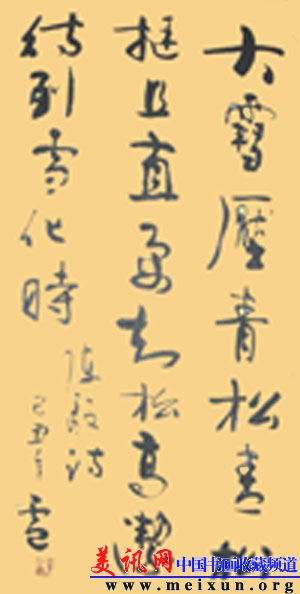 大雪壓青松青松
挺且直要知松高潔
待到雪化時
陳毅詩
己丑年
美讯网 中国书画收藏频道
www.meixun.org